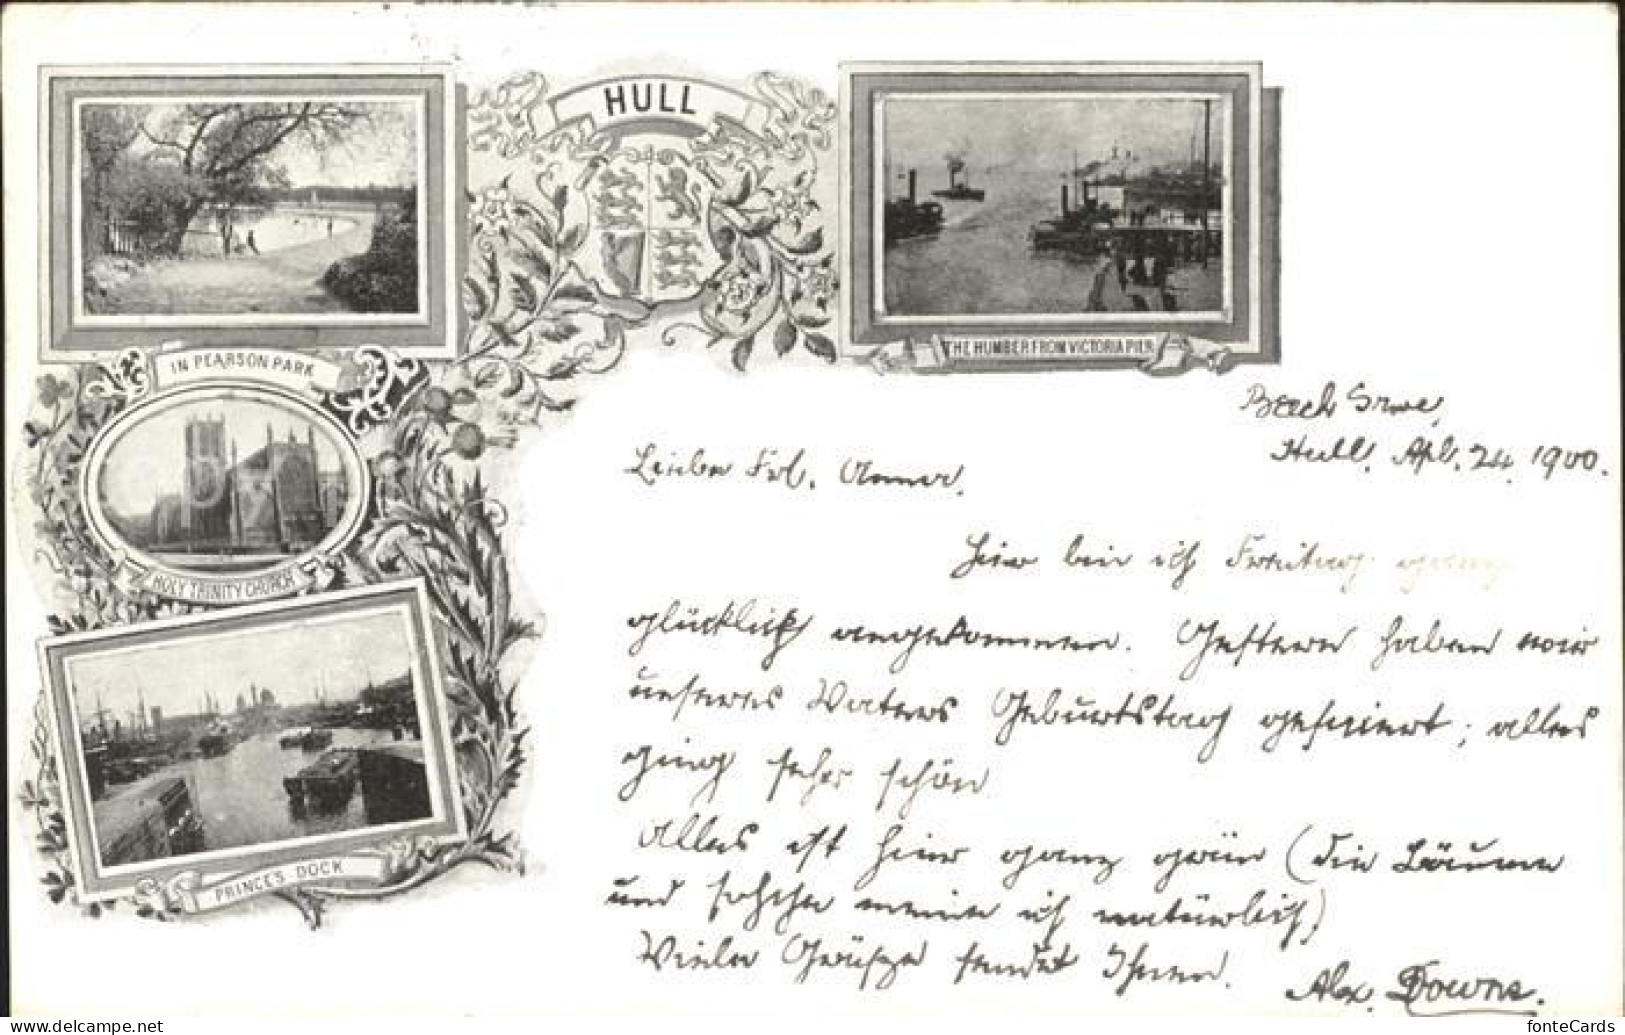 HULL
IN PEARSON PARK
THE HUMBER FROM VICTORIA PIER
HOLY TRINITY CHURCH
PRINCE'S DOCK
Beech Grove,
Hull, Apl. 24, 1900.
Liebe Frl. Anna,
Hier bin ich Freitag ganz
glücklich angekommen. Gestern haben wir
unseres Vaters Geburtstag gefeiert; alles
ging sehr schön
Alles ist hier ganz grün (die Bäume
und solche meine ich natürlich)
Viele Grüsze sendet Ihnen.
Alex. Downs.
fonteCards
www.delcampe.net